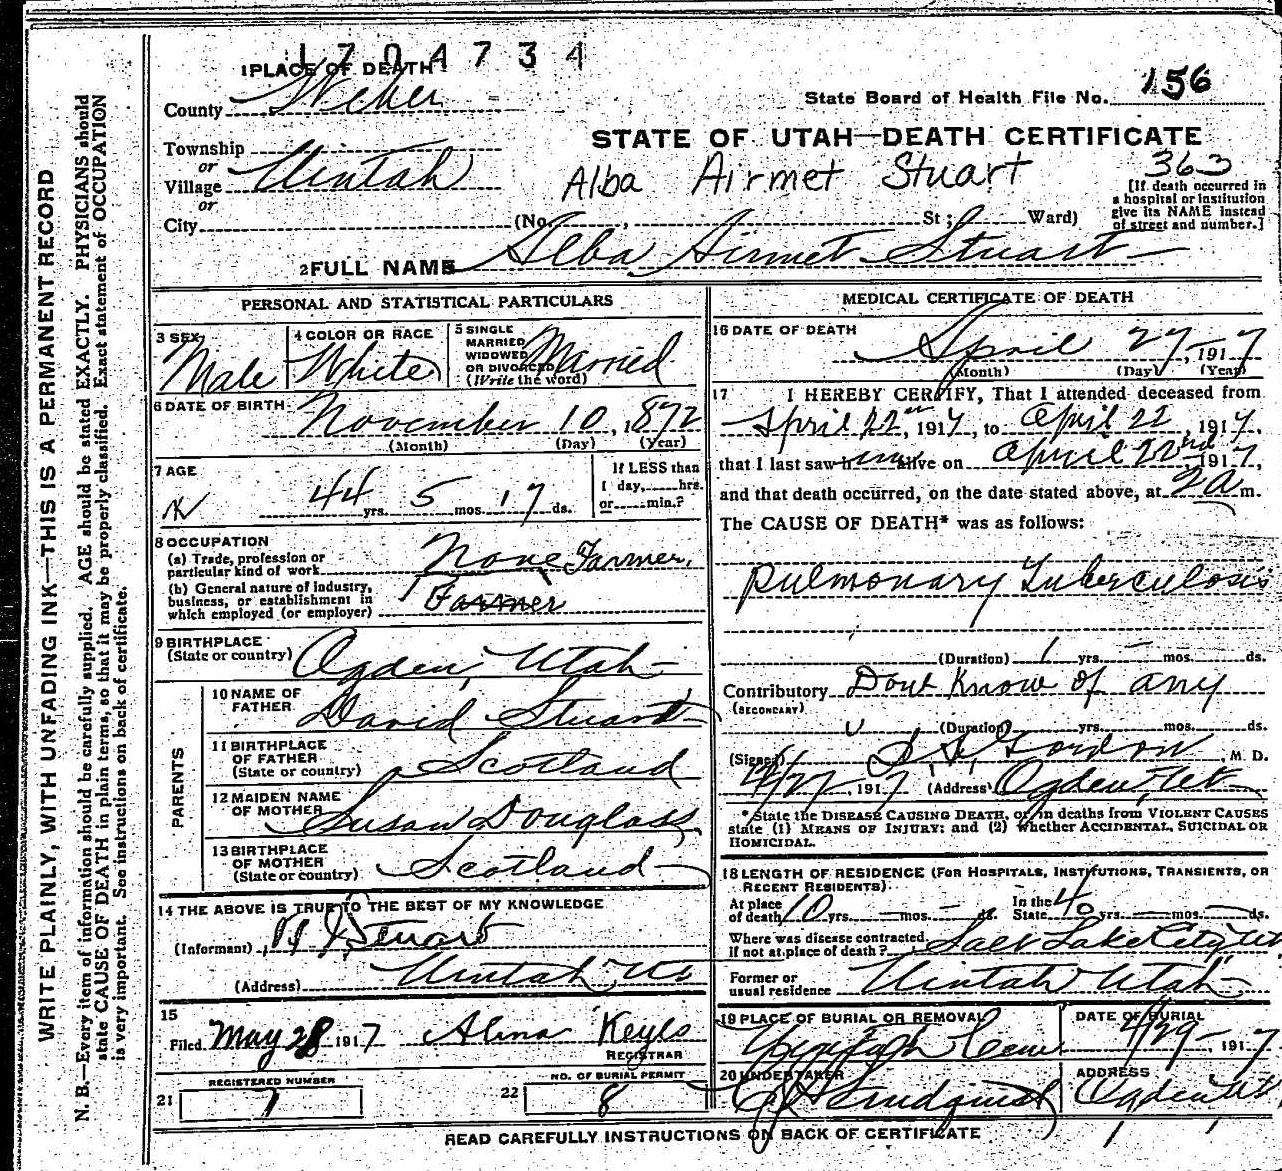 1704734
1 PLACE OF DEATH
County Weber
State Board of Health File No. 156
STATE OF UTAH—DEATH CERTIFICATE
Township
or
Village Uintah
or
City
Alba Airmet Stuart
363
(No. , St ; Ward)
[If death occurred in a hospital or institution give its NAME instead of street and number.]
2 FULL NAME Alba Airmet Stuart
PERSONAL AND STATISTICAL PARTICULARS
3 SEX Male
4 COLOR OR RACE White
5 SINGLE MARRIED WIDOWED OR DIVORCED (Write the word) Married
6 DATE OF BIRTH November 10, 1872
(Month) (Day) (Year)
7 AGE 44 yrs. 5 mos. 17 ds.
If LESS than 1 day, hrs. or min.?
8 OCCUPATION
(a) Trade, profession or particular kind of work None Farmer,
(b) General nature of industry, business, or establishment in which employed (or employer) Farmer
9 BIRTHPLACE (State or country) Ogden, Utah
PARENTS
10 NAME OF FATHER David Stuart
11 BIRTHPLACE OF FATHER (State or country) Scotland
12 MAIDEN NAME OF MOTHER Susan Douglass
13 BIRTHPLACE OF MOTHER (State or country) Scotland
14 THE ABOVE IS TRUE TO THE BEST OF MY KNOWLEDGE
(Informant) Stuart
(Address) Uintah Ut
15
Filed May 28 1917 Keyes
REGISTRAR
REGISTERED NUMBER
21 7
NO. OF BURIAL PERMIT
22 8
MEDICAL CERTIFICATE OF DEATH
16 DATE OF DEATH
April 27, 1917
(Month) (Day) (Year)
17 I HEREBY CERTIFY, That I attended deceased from
April 22, 1917, to April 22, 1917,
that I last saw him alive on April 22nd 1917,
and that death occurred, on the date stated above, at 2 a m.
The CAUSE OF DEATH* was as follows:
Pulmonary Tuberculosis
(Duration) 1 yrs. — mos. ds.
Contributory Dont Know of any
(SECONDARY)
(Duration) yrs. mos. ds.
(Signed) Gordon, M. D.
4/27, 1917 (Address) Ogden, Ut
* State the DISEASE CAUSING DEATH, or, in deaths from VIOLENT CAUSES
state (1) MEANS OF INJURY; and (2) whether ACCIDENTAL, SUICIDAL OR
HOMICIDAL.
18 LENGTH OF RESIDENCE (FOR HOSPITALS, INSTITUTIONS, TRANSIENTS, OR
RECENT RESIDENTS)
At place of death 10 yrs. — mos. — ds. In the State 40 yrs. — mos. — ds.
Where was disease contracted, if not at place of death? Salt Lake City, Ut
Former or usual residence Uintah Utah
19 PLACE OF BURIAL OR REMOVAL Uintah Cem
DATE OF BURIAL 4/29, 1917
20 UNDERTAKER Lindquist
ADDRESS Ogden Ut
READ CAREFULLY INSTRUCTIONS ON BACK OF CERTIFICATE
WRITE PLAINLY, WITH UNFADING INK—THIS IS A PERMANENT RECORD
N. B.—Every item of information should be carefully supplied. AGE should be stated EXACTLY. PHYSICIANS should
state CAUSE OF DEATH in plain terms, so that it may be properly classified. Exact statement of OCCUPATION
is very important. See instructions on back of certificate.